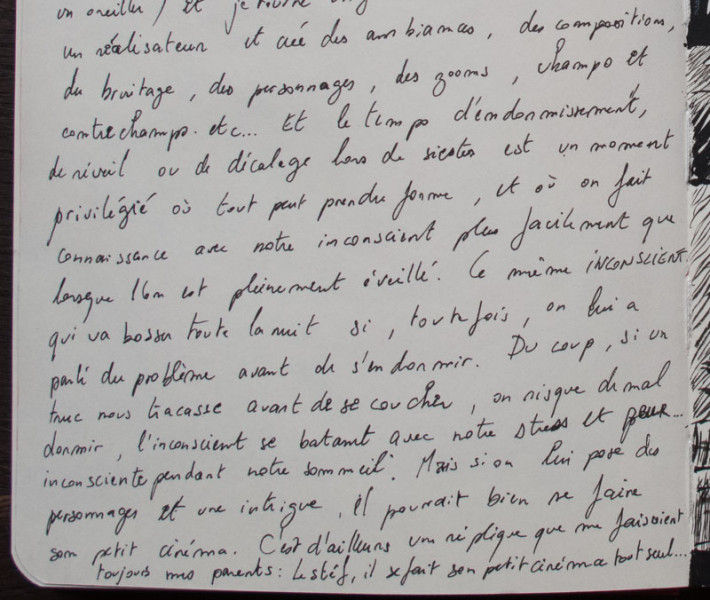 un oreiller / Et je tourne
un réalisateur et créé des ambiances, des compositions,
du bruitage, des personnages, des zooms, champs et
contrechamps. etc... Et le temps d'endormissement,
de réveil ou de décalage lors de siestes est un moment
privilégié où tout peut prendre forme, et où on fait
connaissance avec notre inconscient plus facilement que
lorsque l'on est pleinement éveillé. Ce même INCONSCIENT
qui va bosser toute la nuit si, toutefois, on lui a
parlé du problème avant de s'endormir. Du coup, si un
truc nous tracasse avant de se coucher, on risque de mal
dormir, l'inconscient se battant avec notre stress et peur...
inconsciente pendant notre sommeil. Mais si on lui pose des
personnages et une intrigue, il pourrait bien se faire
son petit cinéma. C'est d'ailleurs une réplique que me faisaient
toujours mes parents : Le stéf, il se fait son petit cinéma tout seul...